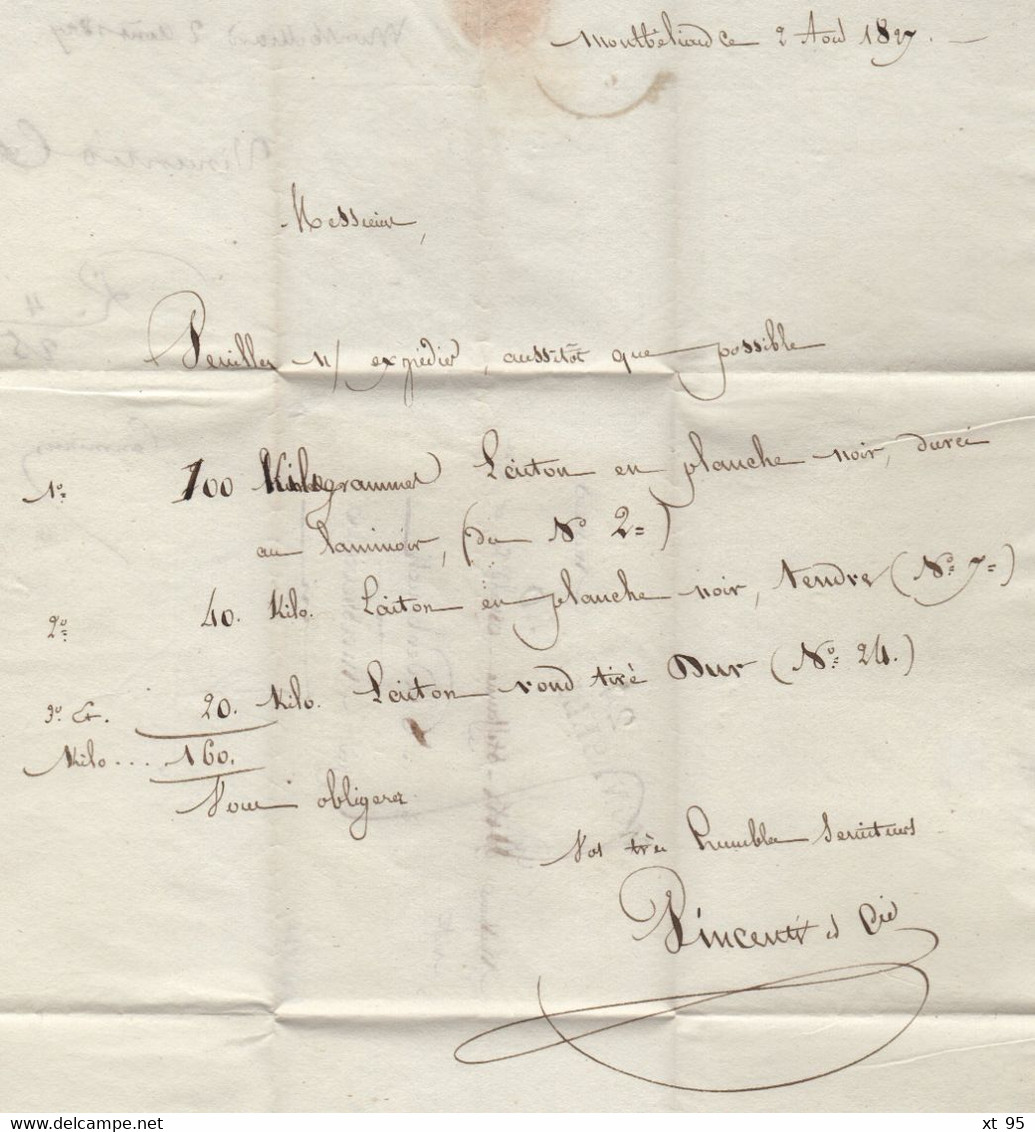 Montbéliard ce 2 Aout 1827.
Messieurs,
Veuillez n/ expédier, aussitôt que possible
1º= 100 Kilogrammes Laiton en planche noir, durci
au Laminoir, (du Nº 2=)
2º= 40. Kilo. Laiton en planche noir, tendre (Nº= 7=)
3º Et. 20. Kilo. Laiton rond tiré Dur (Nº= 24.)
Kilo... 160.
Vous obligerez
Vos très humbles Serviteurs
Vincenti et Cie
xt 95